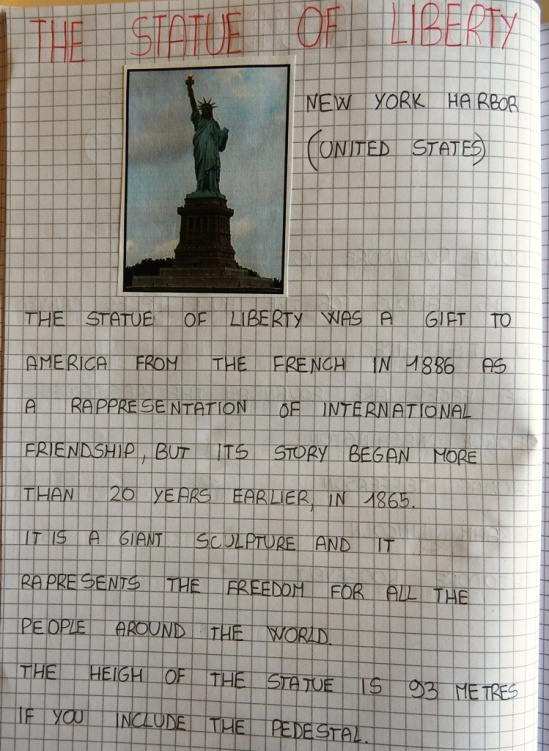 THE STATUE OF LIBERTY
NEW YORK HARBOR
(UNITED STATES)
THE STATUE OF LIBERTY WAS A GIFT TO
AMERICA FROM THE FRENCH IN 1886 AS
A RAPPRESENTATION OF INTERNATIONAL
FRIENDSHIP, BUT ITS STORY BEGAN MORE
THAN 20 YEARS EARLIER, IN 1865.
IT IS A GIANT SCULPTURE AND IT
RAPRESENTS THE FREEDOM FOR ALL THE
PEOPLE AROUND THE WORLD.
THE HEIGH OF THE STATUE IS 93 METRES
IF YOU INCLUDE THE PEDESTAL.